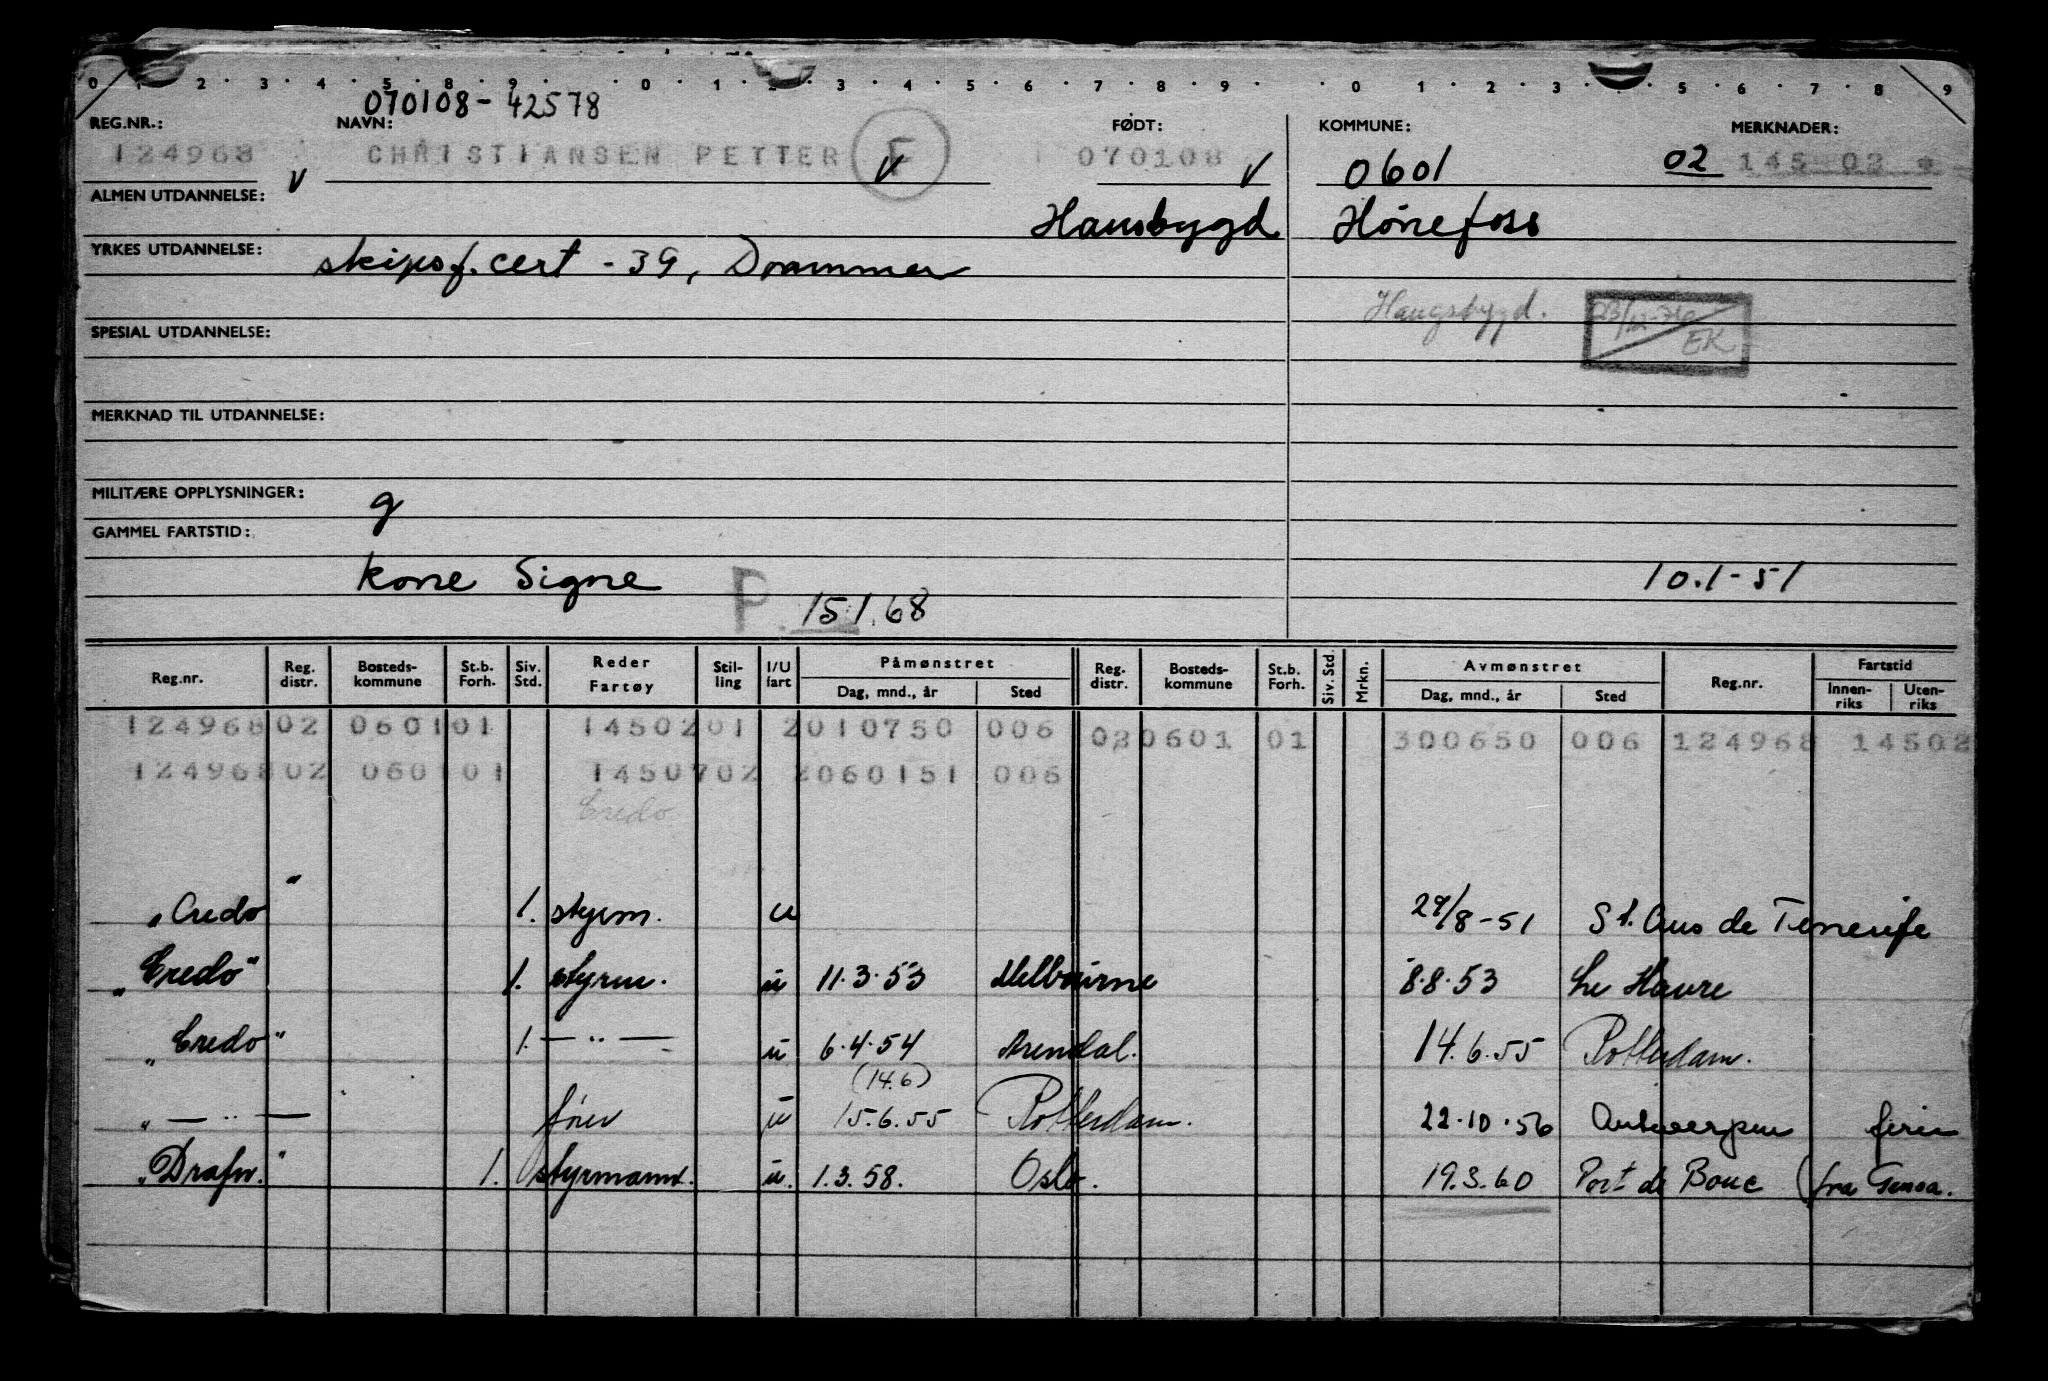 0 1 2 3 4 5 8 9 0 1 2 3 4 5 6 7 8 9 0 1 2 3 5 6 7 8 9
070108-42578
REG.NR.: NAVN: FØDT: KOMMUNE: MERKNADER:
124968 CHRISTIANSEN PETTER F 070108 0601 02 145 02
V V V
ALMEN UTDANNELSE: Hausbygd Hönefoss
YRKES UTDANNELSE: skipsf. cert - 39, Drammen
Haugsbygd. 23/12-76 EK
SPESIAL UTDANNELSE:
MERKNAD TIL UTDANNELSE:
MILITÆRE OPPLYSNINGER: g
GAMMEL FARTSTID:
kone Signe 10.1-51
P 15.1.68
Reg.nr. Reg. distr. Bosteds-kommune St.b. Forh. Siv. Std. Reder Fartøy Stil-ling I/U fart Påmønstret Dag, mnd., år Sted Reg. distr. Bosteds-kommune St.b. Forh. Siv. Std. Mrkn. Avmønstret Dag, mnd., år Sted Reg.nr. Fartstid Innen-riks Uten-riks
124968 02 0601 01 1450201 2010750 006 020601 01 300650 006 124968 14502
124968 02 0601 01 1450702 2060151 006
Credo
"Credo" 1. styrm. u 29/8-51 St. Crus de Tenerife
"Credo" 1. styrm. u 11.3.53 Melbourne 8.8.53 Le Havre
"Credo" 1. — " — u 6.4.54 Arendal. 14.6.55 Rotterdam.
(14.6)
" — " — förer u 15.6.55 Rotterdam. 22.10.56 Antwerpen ferie
"Drafn." 1. styrmann. u. 1.3.58. Oslo. 19.3.60 Port de Bouc (fra Genoa.